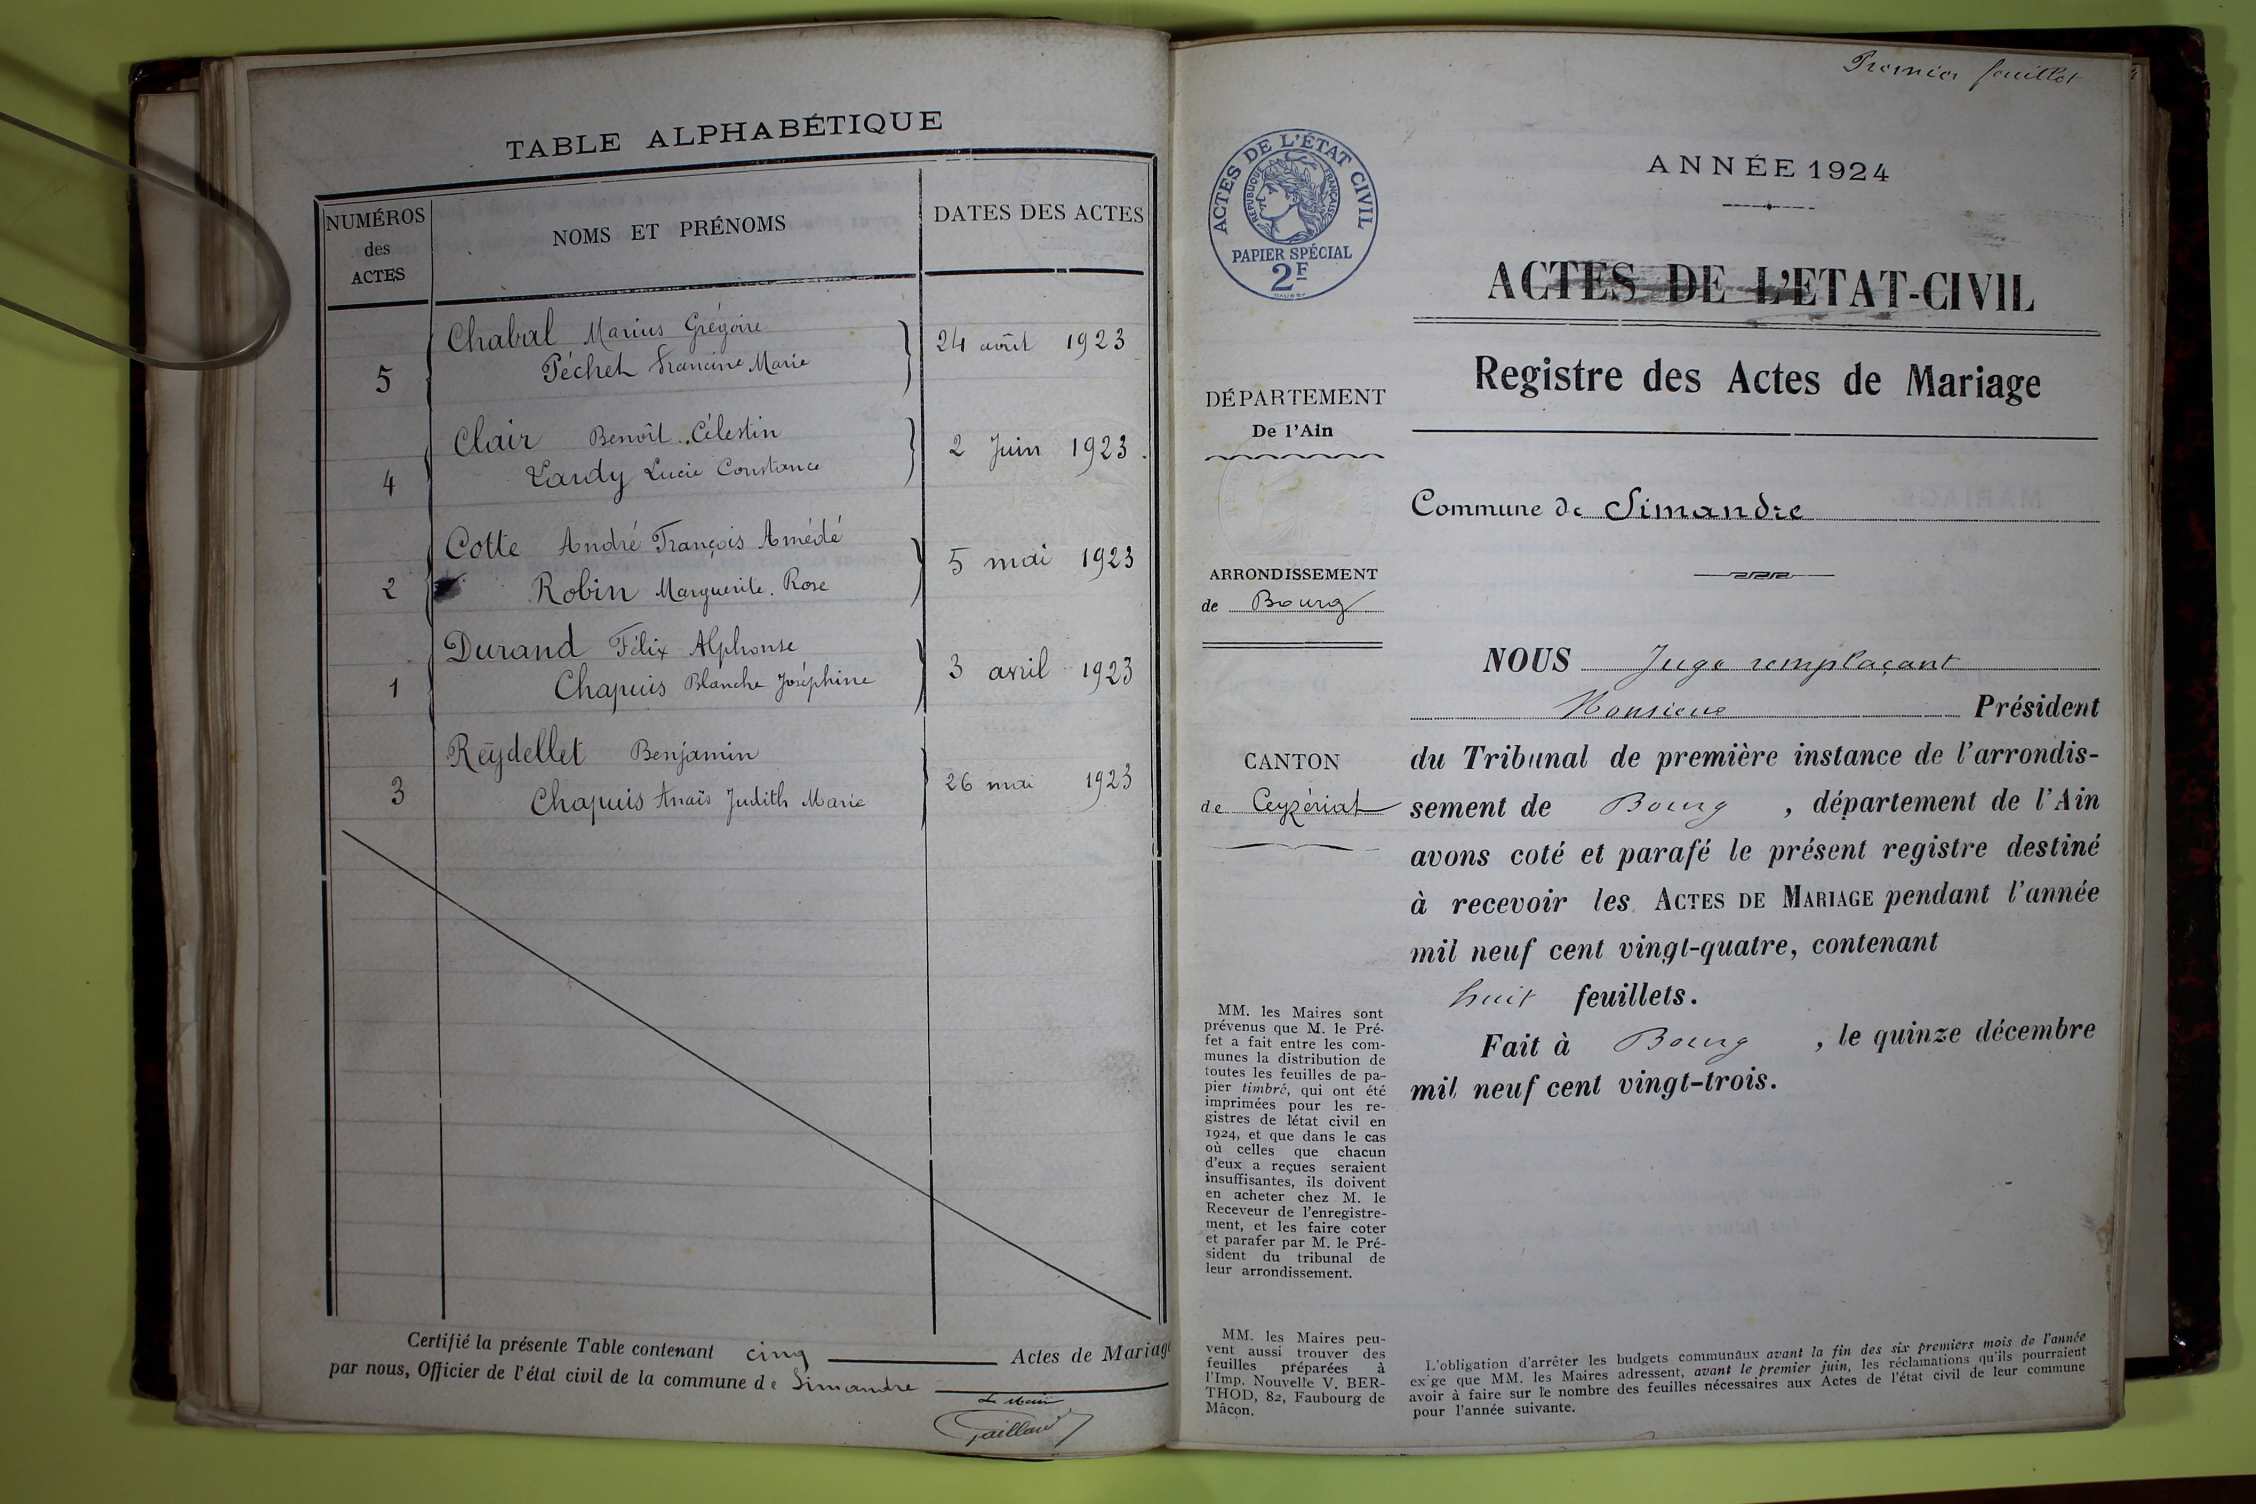 TABLE ALPHABÉTIQUE
NUMÉROS
des
ACTES
NOMS ET PRÉNOMS
DATES DES ACTES
5
Chabal Marius Grégoire
Péchet Francine Marie
24 août 1923
4
Clair Benoît Célestin
Tardy Lucie Constance
2 Juin 1923.
2
Cotte André François Amédé
Robin Marguerite Rose
5 mai 1923
1
Durand Félix Alphonse
Chapuis Blanche Joséphine
3 avril 1923
3
Reydellet Benjamin
Chapuis Anaïs Judith Marie
26 mai 1923
Certifié la présente Table contenant cinq Actes de Mariage
par nous, Officier de l'état civil de la commune de Simandre
Le Maire
Premier feuillet
ACTES DE L'ÉTAT CIVIL
RÉPUBLIQUE FRANÇAISE
PAPIER SPÉCIAL
2F
ANNÉE 1924
ACTES DE L'ETAT-CIVIL
Registre des Actes de Mariage
DÉPARTEMENT
De l'Ain
Commune de Simandre
ARRONDISSEMENT
de Bourg
CANTON
de Ceyzériat
NOUS Juge remplaçant
Monsieur Président
du Tribunal de première instance de l'arrondis-
sement de Bourg, département de l'Ain
avons coté et parafé le présent registre destiné
à recevoir les ACTES DE MARIAGE pendant l'année
mil neuf cent vingt-quatre, contenant
huit feuillets.
Fait à Bourg, le quinze décembre
mil neuf cent vingt-trois.
MM. les Maires sont
prévenus que M. le Pré-
fet a fait entre les com-
munes la distribution de
toutes les feuilles de pa-
pier timbré, qui ont été
imprimées pour les re-
gistres de létat civil en
1924, et que dans le cas
où celles que chacun
d'eux a reçues seraient
insuffisantes, ils doivent
en acheter chez M. le
Receveur de l'enregistre-
ment, et les faire coter
et parafer par M. le Pré-
sident du tribunal de
leur arrondissement.
MM. les Maires peu-
vent aussi trouver des
feuilles préparées à
l'Imp. Nouvelle V. BER-
THOD, 82, Faubourg de
Mâcon.
L'obligation d'arrêter les budgets communaux avant la fin des six premiers mois de l'année
ex'ge que MM. les Maires adressent, avant le premier juin, les réclamations qu'ils pourraient
avoir à faire sur le nombre des feuilles nécessaires aux Actes de l'état civil de leur commune
pour l'année suivante.